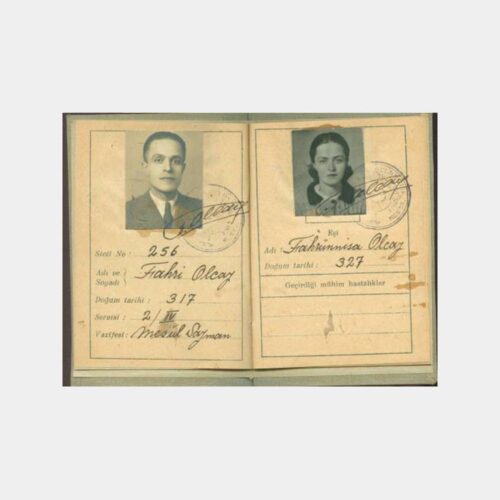 Sicil No : 256
Adı ve Soyadı : Fahri Olcay
Doğum tarihi : 317
Servisi : 2/IV
Vazifesi : Mesül Sayman
Eşi
Adı : Fahrünnisa Olcay
Doğum tarihi : 327
Geçirdiği mühim hastalıklar